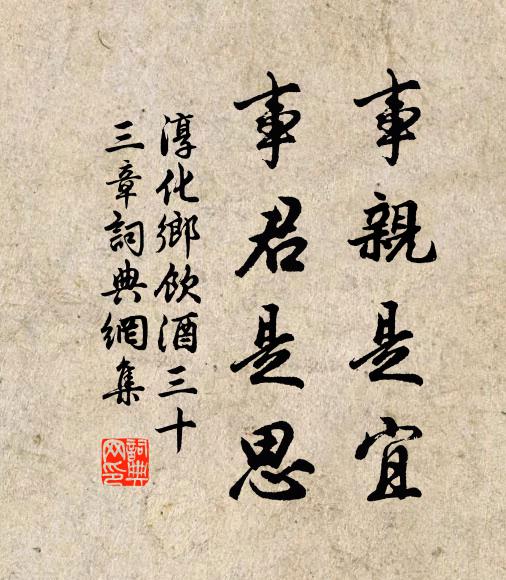 事親是宜
事君是思
淳化鄉飲酒三十
三章詞典網集
詞典
网印